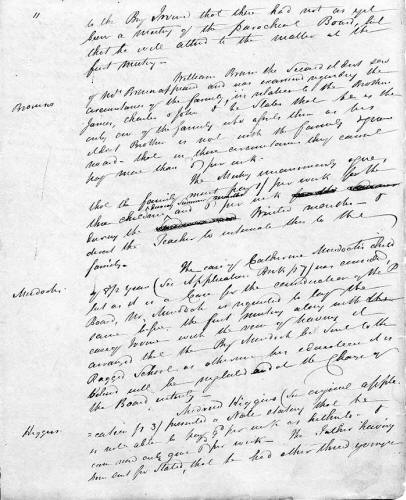 "
to the Boy Irvine that there had not as yet
been a meeting of the Parochial Board, but
that he will attend to the matter at the
first meeting.
Browns
William Brown the Second eldest son
of Mrs Brown appeared and was examined regarding the
circumstances of the family, in relation to the Brothers
James, Charles & John & he States that he is the
only one of the family who assists them as his
eldest Brother is not with the family &
that in these circumstances they cannot
pay more than 6d per week.
The Meeting unanimously agree
that the family must pay 1/ per week for the
three children during Summer months and 6d per week
during the Winter months &
direct the Teacher to intimate this to the
family.
Murdochs
The case of Catherine Murdochs child
of 8½ years (See Application Book p 47) was considered
but as it is a Case for the consideration of the P.
Board, Mr Murdoch is requested to lay the
same before the first meeting along with the
case of Irvine with the view of having it
arranged that the Boy Murdoch be Sent to the
Ragged School as otherwise his education it is
believed will be neglected and at the Charge of
the Board entirely.
Higgins
Mildred Higgins (See original appli-
=cation p 3) presented a Note stating that he
is not able to pay per week as hitherto &
can now only give 6d per week. The Father having
been sent for Stated, that he had other three younger